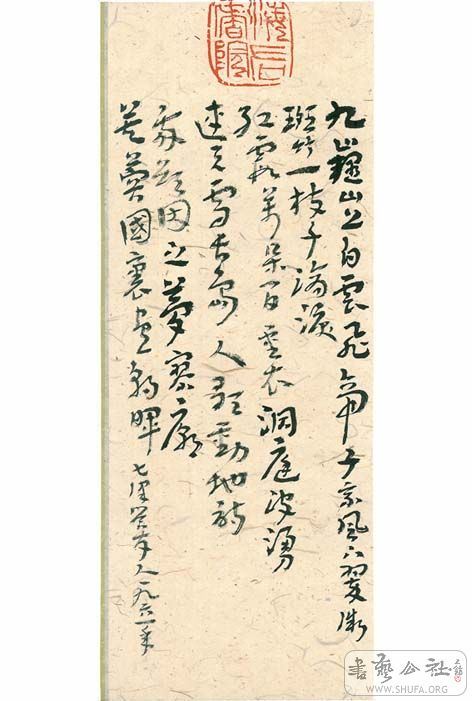 九嶷山上白雲飛帝子乘風下翠微
斑竹一枝千滴淚
紅霞萬朵百重衣洞庭波湧
連天雪長島人歌動地詩
我欲因之夢寥廓
芙蓉國裏盡朝暉 七律答友人一九六一年
書藝公社
WWW.SHUFA.ORG